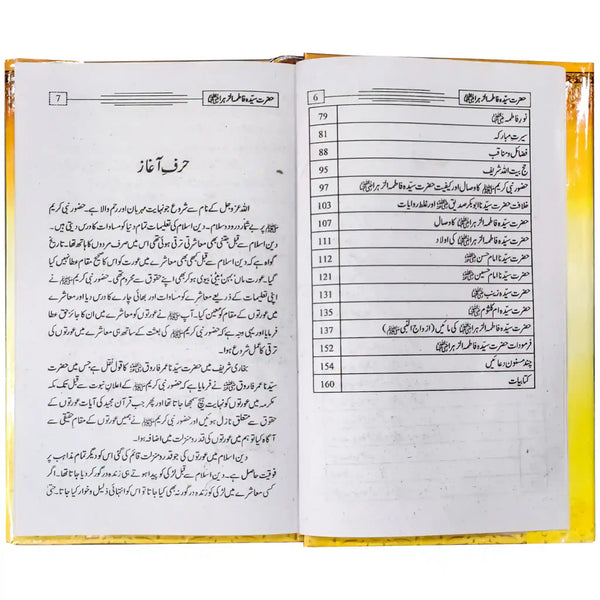 حضرت سیّدہ فاطمۃ الزہرا رضی اللہ عنہا 6
نور فاطمہ رضی اللہ عنہا 79
سیرت مبارکہ 81
فضائل و مناقب 88
حج بیت اللہ شریف 95
حضور نبی کریم ﷺ کا وصال اور کیفیت حضرت سیّدہ فاطمۃ الزہرا رضی اللہ عنہا 97
خلافت حضرت سیّدنا ابوبکر صدیق رضی اللہ عنہ اور غلط روایات 103
حضرت سیّدہ فاطمۃ الزہرا رضی اللہ عنہا کا وصال 107
حضرت سیّدہ فاطمۃ الزہرا رضی اللہ عنہا کی اولاد 111
حضرت سیّدنا امام حسن رضی اللہ عنہ 112
حضرت سیّدنا امام حسین رضی اللہ عنہ 121
حضرت سیّدہ زینب رضی اللہ عنہا 131
حضرت سیّدہ ام کلثوم رضی اللہ عنہا 135
حضرت سیّدہ فاطمۃ الزہرا رضی اللہ عنہا کی مائیں (ازواج النبی ﷺ) 137
فرمودات حضرت سیّدہ فاطمۃ الزہرا رضی اللہ عنہا 152
چند مسنون دعائیں 154
کتابیات 160
حضرت سیّدہ فاطمۃ الزہرا رضی اللہ عنہا 7
حرفِ آغاز
اللہ عزوجل کے نام سے شروع جو نہایت مہربان اور رحم والا ہے۔ حضور نبی کریم
ﷺ پر بے شمار درود و سلام۔ دین اسلام کی تعلیمات تمام دنیا کو مساوات کا درس دیتی ہیں۔
دین اسلام سے قبل جتنی بھی معاشرتی ترقی ہوئی تھی اس میں صرف مردوں کا ہاتھ تھا۔ تاریخ
گواہ ہے کہ دین اسلام سے قبل کبھی بھی معاشرے میں عورتوں کو ان کا صحیح مقام عطا نہیں کیا
گیا۔ عورت ماں، بہن، بیٹی، بیوی ہو کر بھی اپنے حقوق سے محروم تھی۔ حضور نبی کریم ﷺ نے
اپنی تعلیمات کے ذریعے معاشرے کو مساوات اور بھائی چارے کا درس دیا اور معاشرے
میں عورتوں کے حقوق وضع فرمائے۔ آپ ﷺ نے عورتوں کو معاشرے میں ان کا جائز حق عطا
فرمایا اور یہی وجہ ہے کہ حضور نبی کریم ﷺ کی بعثت کے ساتھ ہی معاشرے میں عورتوں کی
ترقی کا عمل شروع ہوا۔
بخاری شریف میں حضرت سیّدنا عمر فاروق رضی اللہ عنہ کا قول نقل ہے جس میں حضرت
سیّدنا عمر فاروق رضی اللہ عنہ نے فرمایا ہے کہ حضور نبی کریم ﷺ کے اعلانِ نبوت سے قبل مکہ
مکرمہ میں عورتوں کو نہایت ہیچ سمجھا جاتا تھا۔ پھر جب قرآن مجید کی آیات عورتوں کے
حقوق سے متعلق نازل ہوئیں اور حضور نبی کریم ﷺ نے ہمیں عورتوں کے مقام حقیقی سے
آگاہ کیا تو ہم میں عورتوں کی قدر و منزلت میں اضافہ ہوا۔
دین اسلام میں عورتوں کی جو قدر و منزلت قائم کی گئی اس کو دیگر تمام مذاہب پر
فوقیت حاصل ہے۔ دین اسلام سے قبل لڑکی کو پیدا ہوتے ہی زندہ درگور کر دیا جاتا تھا۔ اگر
کسی معاشرے میں لڑکی کو زندہ درگور نہ بھی کیا جاتا تو اس کو انتہائی ذلیل و خوار کیا جاتا تھا۔ حتیٰ